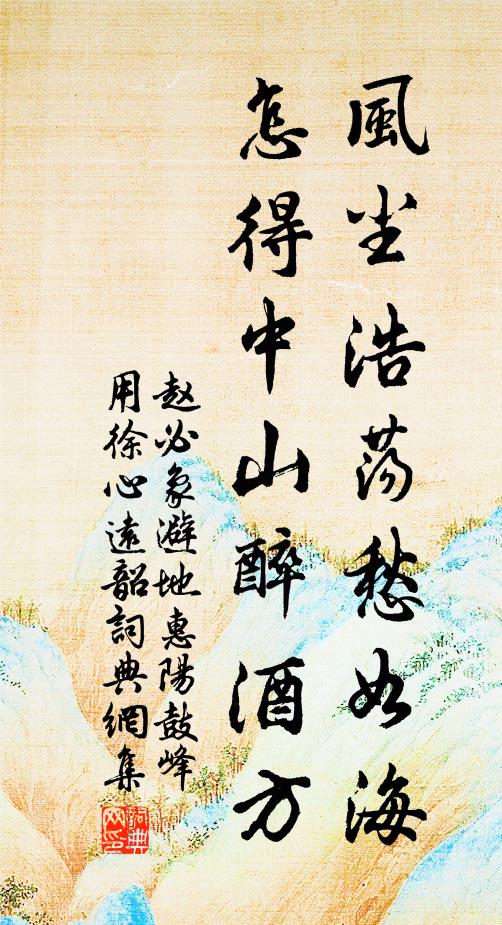 風尘浩荡愁如海
怎得中山醉酒方
赵必象避地惠陽鼓峰
用徐心遠韶詞典網集
詞典
网印